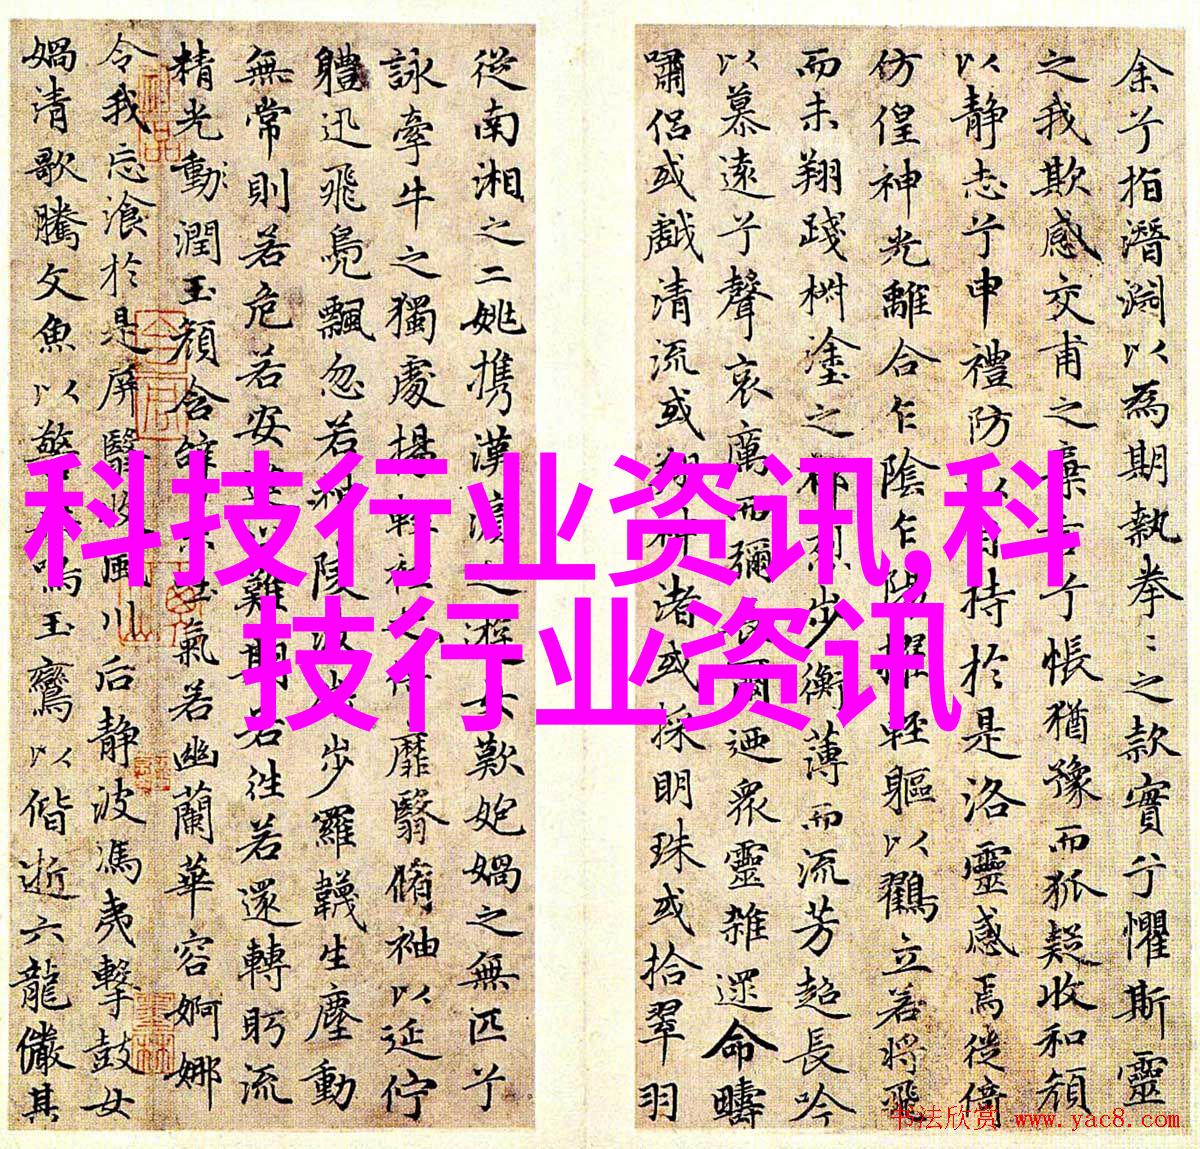 余兮指潛淵以為期執拳〻之款實兮懼斯靈
之我欺感交甫之棄言兮悵猶豫而狐疑收和顔
以静志兮申禮防以自持於是洛靈感焉徙倚
仿偟神光離合乍陰乍陽擢輕軀以鶴立若將飛
而未翔踐椒塗之郁烈步衡薄而流芳超長吟
以慕遠兮聲哀厲而彌長爾迺眾靈雜遝命疇
嘯侶或戲清流或翔神渚或採明珠或拾翠羽
從南湘之二姚攜漢濱之遊女歎匏媧之無匹兮
詠牽牛之獨處揚輕袿之倚靡翳脩袖以延佇
體迅飛鳧飄忽若神陵波微步羅韈生塵動
無常則若危若安進止難期若往若還轉眄流
精光動潤玉顏含辭未吐氣若幽蘭華容婀娜
令我忘湌於是屏翳收風川后静波馮夷擊鼓女
媧清歌騰文魚以警乘鳴玉鸞以偕逝六龍儼其
科技行业资讯,科
技行业资讯
书法欣赏 www.yac8.com